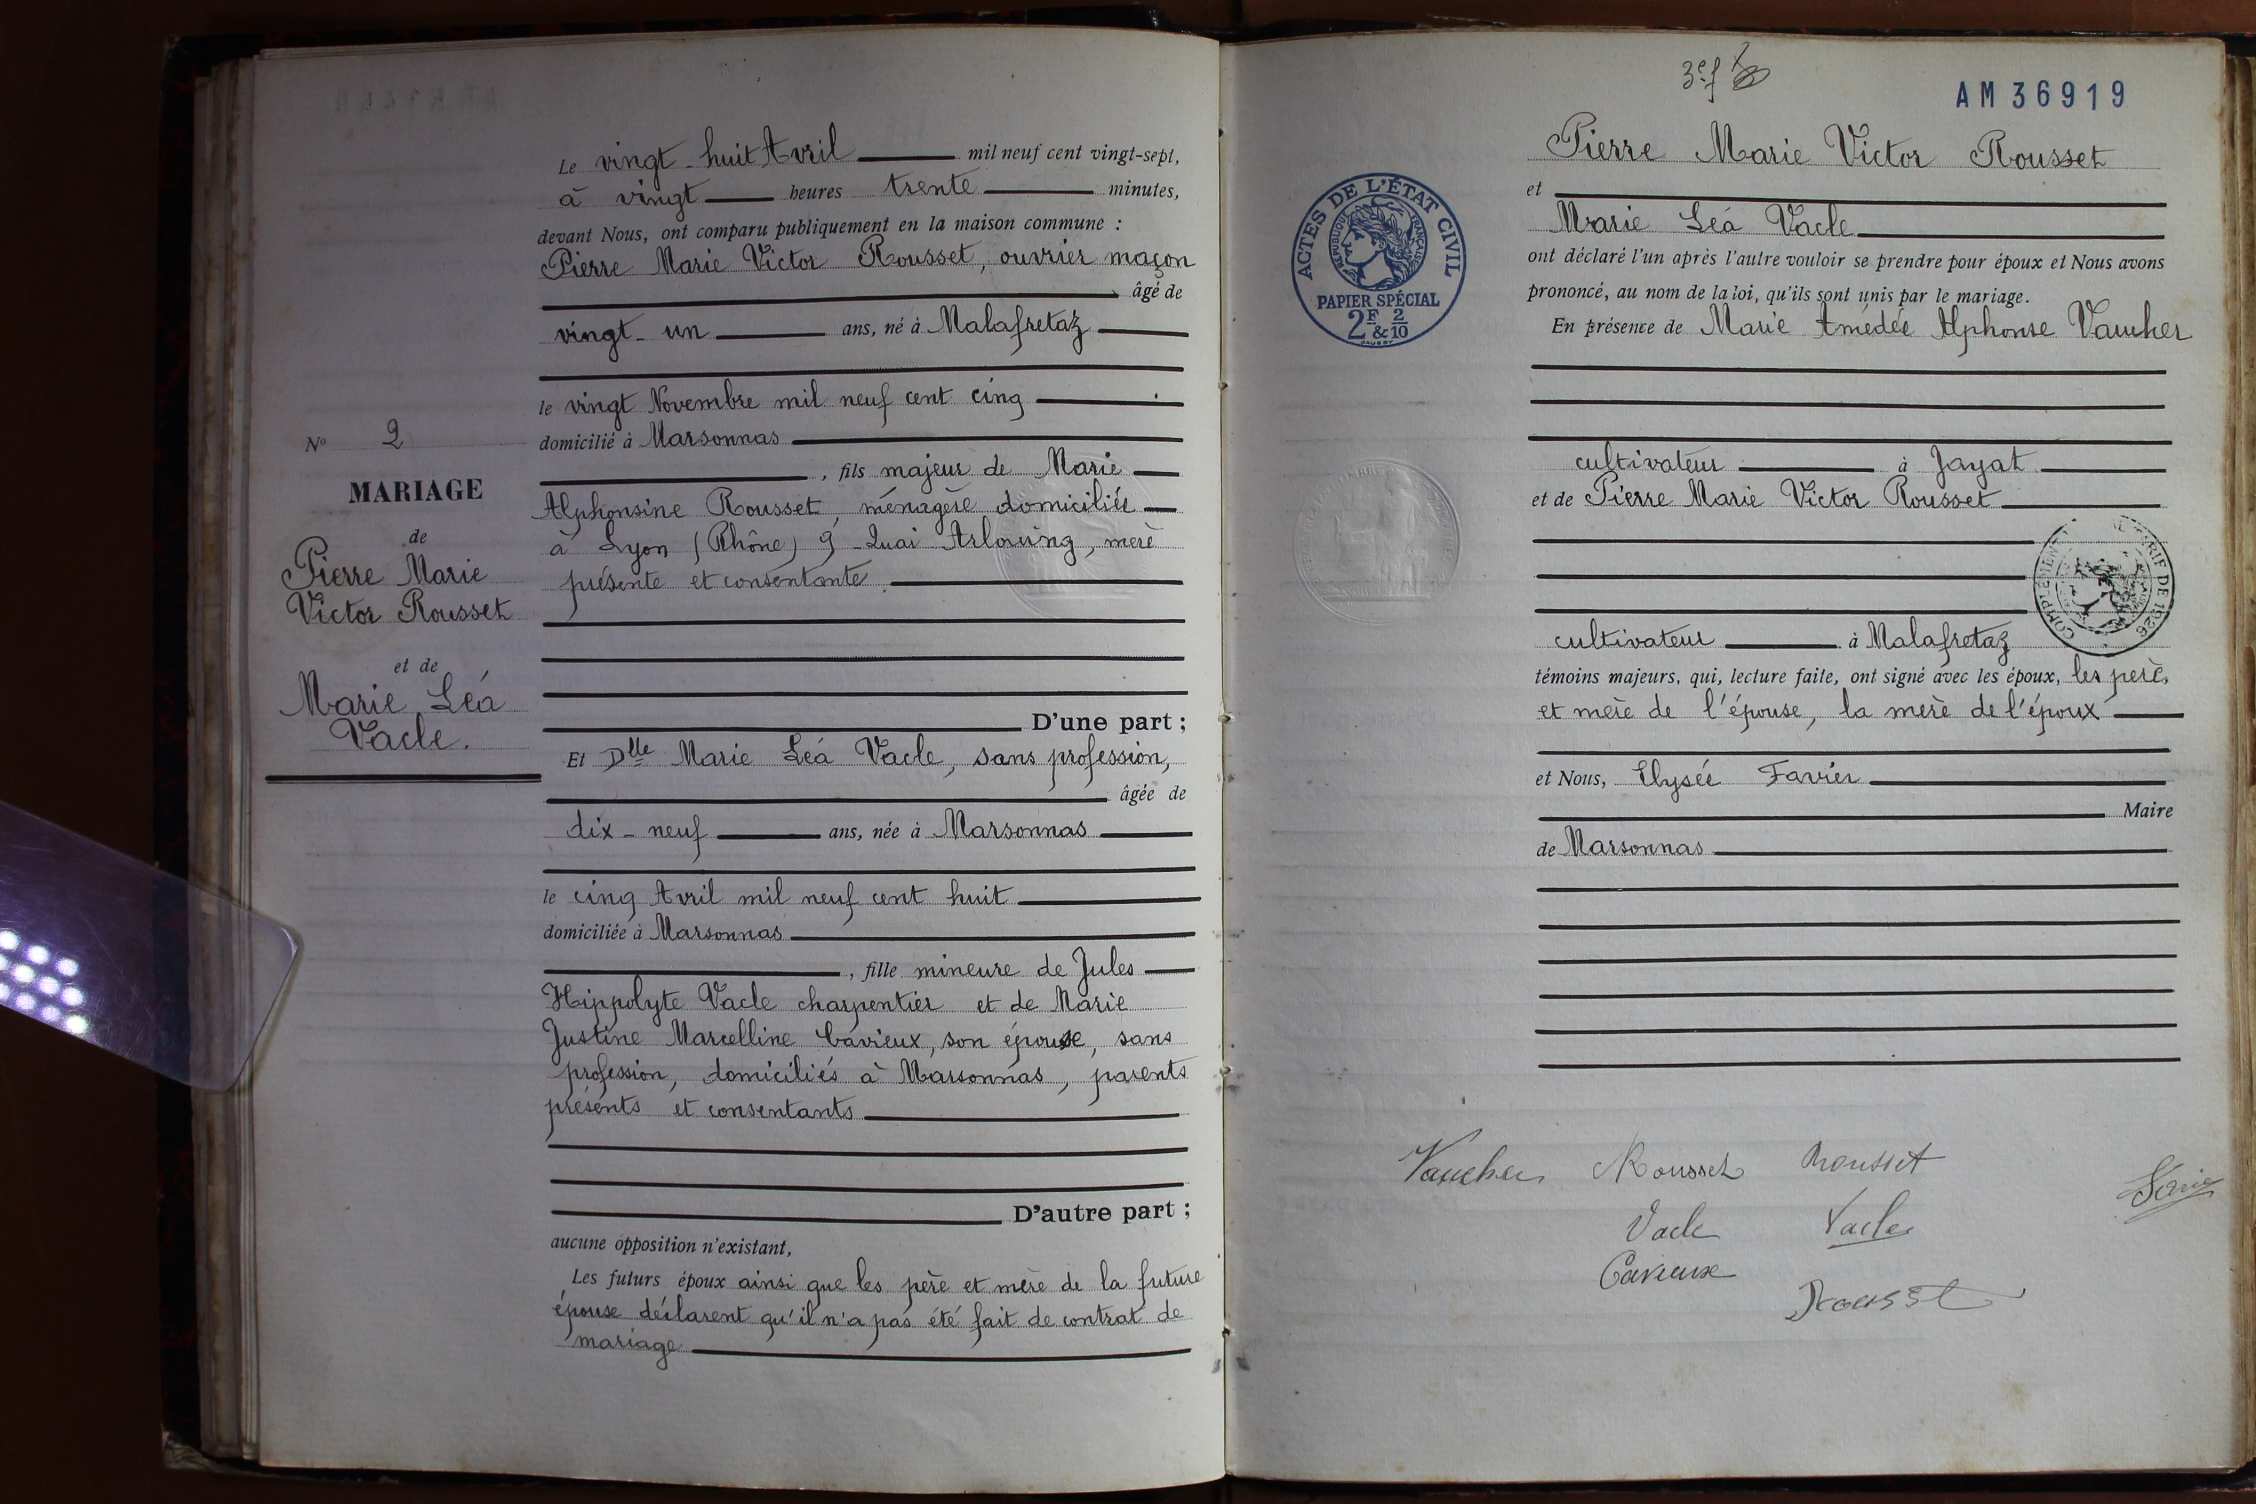 Le vingt-huit Avril mil neuf cent vingt-sept,
à vingt heures trente minutes,
devant Nous, ont comparu publiquement en la maison commune :
Pierre Marie Victor Rousset, ouvrier maçon
âgé de
vingt-un ans, né à Malafretaz
le vingt Novembre mil neuf cent cinq
domicilié à Marsonnas
, fils majeur de Marie
Alphonsine Rousset, ménagère domiciliée
à Lyon (Rhône) 9 Quai Arloing, mère
présente et consentante
D'une part ;
Et Dlle Marie Léa Vacle, sans profession,
âgée de
dix-neuf ans, née à Marsonnas
le cinq Avril mil neuf cent huit
domiciliée à Marsonnas
, fille mineure de Jules
Hippolyte Vacle charpentier et de Marie
Justine Marcelline Cavieux, son épouse, sans
profession, domiciliés à Marsonnas, parents
présents et consentants
D'autre part ;
aucune opposition n'existant,
Les futurs époux ainsi que les père et mère de la future
épouse déclarent qu'il n'a pas été fait de contrat de
mariage
N° 2
MARIAGE
de
Pierre Marie
Victor Rousset
et de
Marie Léa
Vacle.
3e f
AM 36919
Pierre Marie Victor Rousset
et
Marie Léa Vacle
ont déclaré l'un après l'autre vouloir se prendre pour époux et Nous avons
prononcé, au nom de la loi, qu'ils sont unis par le mariage.
En présence de Marie Amédée Alphonse Vaucher
cultivateur à Jayat
et de Pierre Marie Victor Rousset
cultivateur à Malafretaz
témoins majeurs, qui, lecture faite, ont signé avec les époux, les père,
et mère de l'épouse, la mère de l'époux
et Nous, Elysée Favier
Maire
de Marsonnas
ACTES DE L'ÉTAT CIVIL
RÉPUBLIQUE FRANÇAISE
PAPIER SPÉCIAL
2F & 2/10
DE 1926
Vaucher Rousset Rousset
Vacle Vacle
Cavieux
Rousset